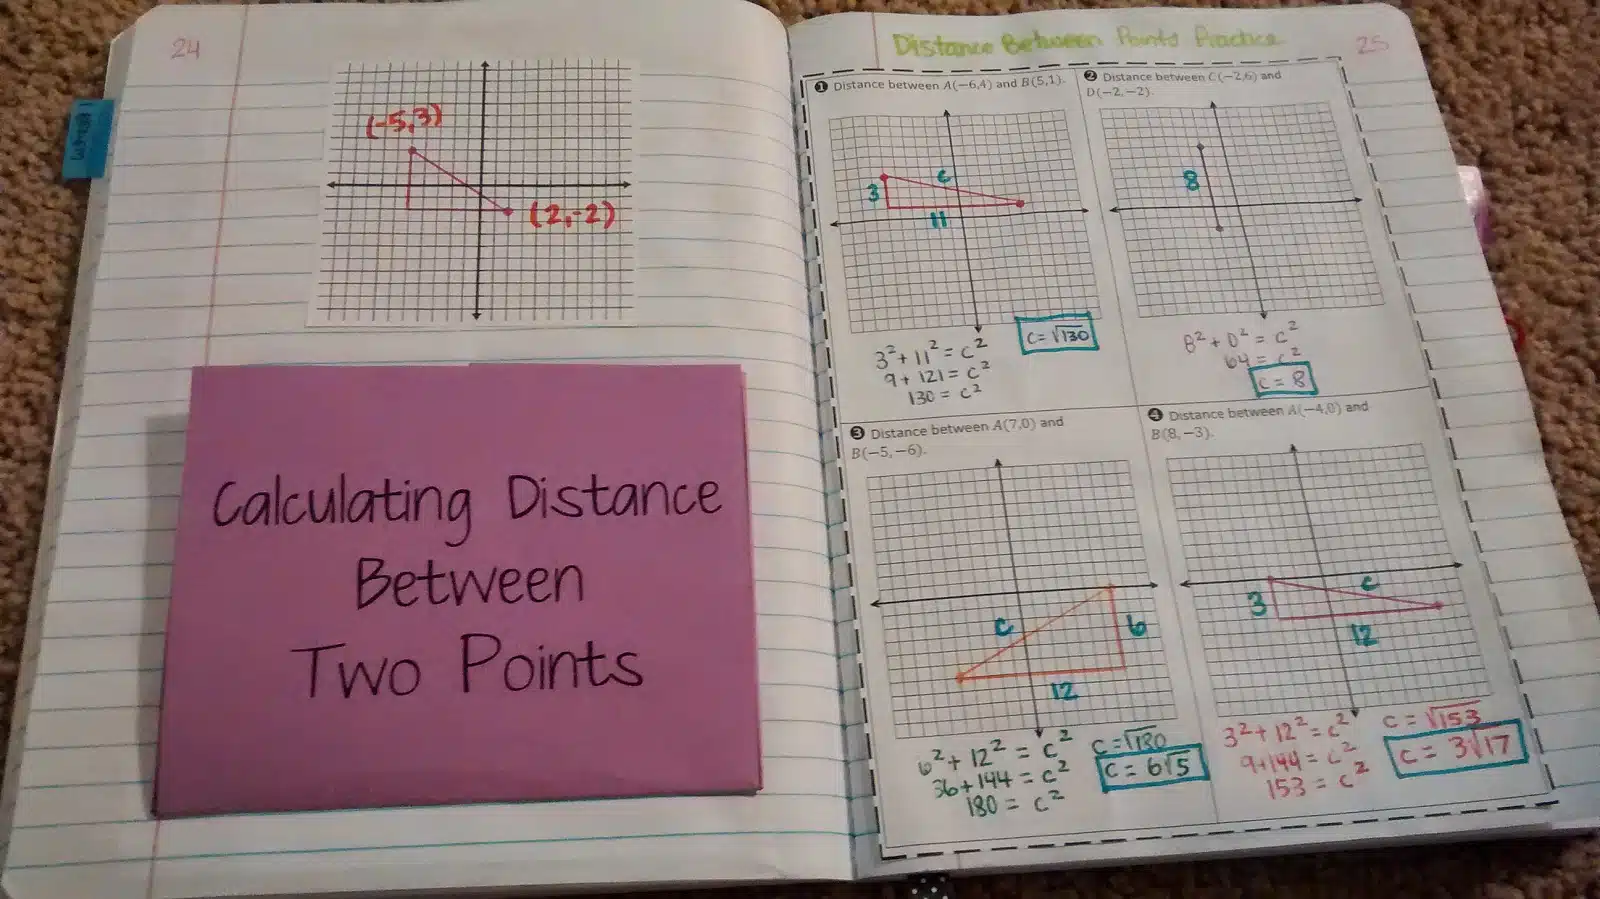 24
(-5,3)
(2,-2)
Calculating Distance
Between
Two Points
Distance Between Points Practice
25
❶ Distance between A(−6,4) and B(5,1).
3
c
11
3² + 11² = c²
9 + 121 = c²
130 = c²
c = √130
❷ Distance between C(−2,6) and
D(−2,−2).
8
8² + 0² = c²
64 = c²
c = 8
❸ Distance between A(7,0) and
B(−5,−6).
c
6
12
6² + 12² = c²
36 + 144 = c²
180 = c²
c = √180
c = 6√5
❹ Distance between A(−4,0) and
B(8,−3).
3
c
12
3² + 12² = c²
9 + 144 = c²
153 = c²
c = √153
c = 3√17